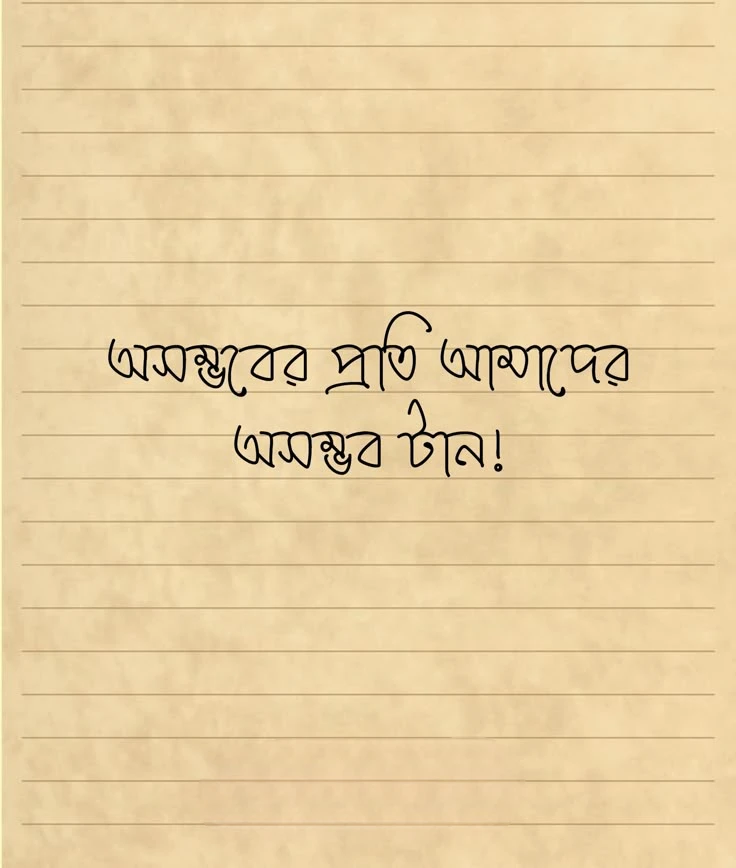 অসম্ভবের প্রতি আমাদের
অসম্ভব টান!